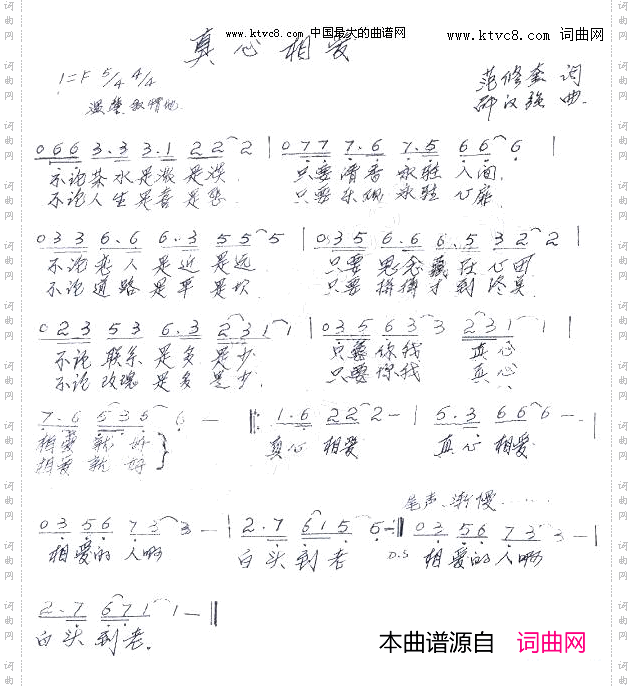 www.ktvc8.com 中国最大的曲谱网
www.ktvc8.com 词曲网
真心相爱
1=F 5/4 4/4
范修奎 词
邵汉强 曲
0 6 6 3.3 3.1 2 2 2 | 0 7 7 7.6 7.5 6 6 6 |
不论茶水是浓是淡 只要清香永驻人间
不论人生是喜是悲 只要永驻心扉
0 3 3 6.6 6.3 5 5 5 | 0 3 5 6.6 6.5 3 2 2 |
不论恋人是近是远 只要思念藏在心田
不论道路是平是坎 只要拼搏才到终点
0 2 3 5 3 6.3 2 3 1 1 | 0 3 5 6 3 3 2 3 1 1 |
不论联系是多是少 只要你我真心
不论玫瑰是多是少 只要你我真心
7.6 5 3 5 6 — 1.6 2 2 2 — | 5.3 6 6 6 — |
相爱就好 真心相爱 真心相爱
相爱就好
尾声 渐慢......
0 3 5 6 7 3 3 — | 2.7 6 1 5 5 — 0 3 5 6 7 3 3 — |
相爱的人啊 白头到老 D.S 相爱的人啊
2.7 6 7 1 1 —
白头到老
本曲谱源自 词曲网
词曲网
词曲网
词曲网
词曲网
词曲网
词曲网
词曲网
词曲网
词曲网
词曲网
词曲网
词曲网